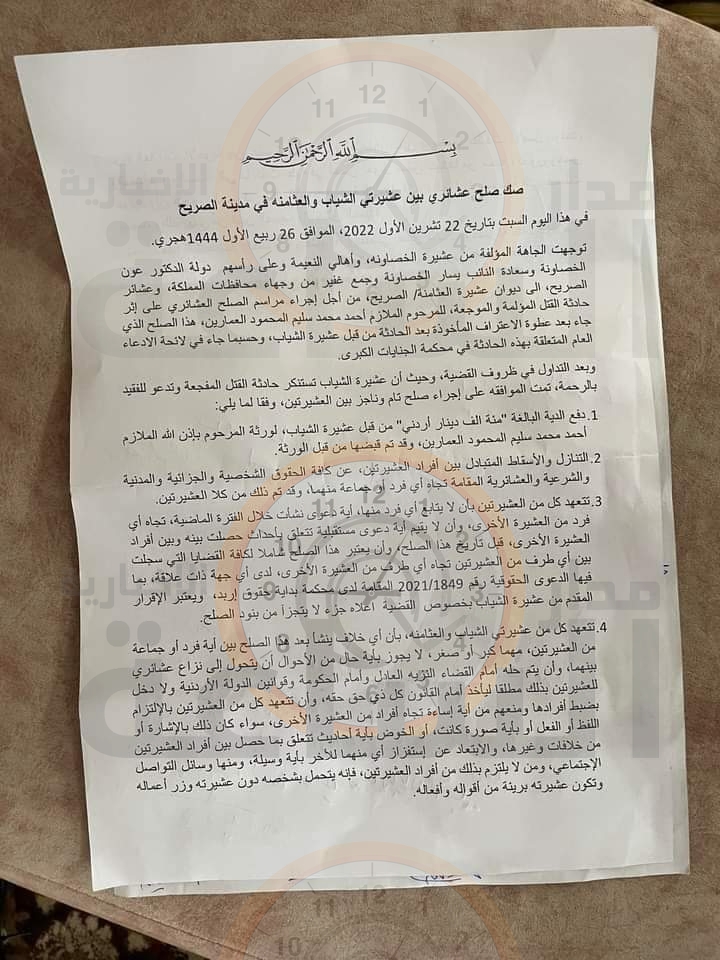 بسم الله الرحمن الرحيم
صك صلح عشائري بين عشيرتي الشياب والعثامنه في مدينة الصريح
في هذا اليوم السبت بتاريخ 22 تشرين الأول 2022، الموافق 26 ربيع الأول 1444هجري.
توجهت الجاهة المؤلفة من عشيرة الخصاونه، وأهالي النعيمة وعلى رأسهم دولة الدكتور عون
الخصاونة وسعادة النائب يسار الخصاونة وجمع غفير من وجهاء محافظات المملكة، وعشائر
الصريح، الى ديوان عشيرة العثامنة/ الصريح، من أجل إجراء مراسم الصلح العشائري على إثر
حادثة القتل المؤلمة والموجعة، للمرحوم الملازم أحمد محمد سليم المحمود العمارين، هذا الصلح الذي
جاء بعد عطوة الاعتراف المأخوذة بعد الحادثة من قبل عشيرة الشياب، وحسبما جاء في لائحة الادعاء
العام المتعلقة بهذه الحادثة في محكمة الجنايات الكبرى.
وبعد التداول في ظروف القضية، وحيث أن عشيرة الشياب تستنكر حادثة القتل المفجعة وتدعو للفقيد
بالرحمة، تمت الموافقه على إجراء صلح تام وناجز بين العشيرتين، وفقا لما يلي:
1. دفع الدية البالغة "مئة الف دينار أردني" من قبل عشيرة الشياب، لورثة المرحوم بإذن الله الملازم
أحمد محمد سليم المحمود العمارين، وقد تم قبضها من قبل الورثة.
2. التنازل والأسقاط المتبادل بين أفراد العشيرتين، عن كافة الحقوق الشخصية والجزائية والمدنية
والشرعية والعشائرية المقامة تجاه أي فرد أو جماعة منهما، وقد تم ذلك من كلا العشيرتين.
3. تتعهد كل من العشيرتين بأن لا يتابع أي فرد منها، أية دعوى نشأت خلال الفترة الماضية، تجاه أي
فرد من العشيرة الأخرى، وأن لا يقيم أية دعوى مستقبلية تتعلق بأحداث حصلت بينه وبين أفراد
العشيرة الأخرى، قبل تاريخ هذا الصلح، وأن يعتبر هذا الصلح شاملا لكافة القضايا التي سجلت
بين أي طرف من العشيرتين تجاه أي طرف من العشيرة الأخرى، لدى أي جهة ذات علاقة، بما
فيها الدعوى الحقوقية رقم 2021/1849 المقامة لدى محكمة بداية حقوق إربد، ويعتبر الإقرار
المقدم من عشيرة الشياب بخصوص القضية اعلاه جزء لا يتجزأ من بنود الصلح.
4. تتعهد كل من عشيرتي الشياب والعثامنه، بأن أي خلاف ينشأ بعد هذا الصلح بين أية فرد أو جماعة
من العشيرتين، مهما كبر أو صغر، لا يجوز بأية حال من الأحوال أن يتحول إلى نزاع عشائري
بينهما، وأن يتم حله أمام القضاء النزيه العادل وأمام الحكومة وقوانين الدولة الأردنية ولا دخل
للعشيرتين بذلك مطلقا ليأخذ أمام القانون كل ذي حق حقه، وأن تتعهد كل من العشيرتين بالإلتزام
بضبط أفرادها ومنعهم من أية إساءة تجاه أفراد من العشيرة الأخرى، سواء كان ذلك بالإشارة أو
اللفظ أو الفعل أو بأية صورة كانت، أو الخوض بأية أحاديث تتعلق بما حصل بين أفراد العشيرتين
من خلافات وغيرها، والابتعاد عن إستفزاز أي منهما للأخر بأية وسيلة، ومنها وسائل التواصل
الإجتماعي، ومن لا يلتزم بذلك من أفراد العشيرتين، فإنه يتحمل بشخصه دون عشيرته وزر أعماله
وتكون عشيرته بريئة من أقواله وأفعاله.
مدار
الساعة
الإخبارية